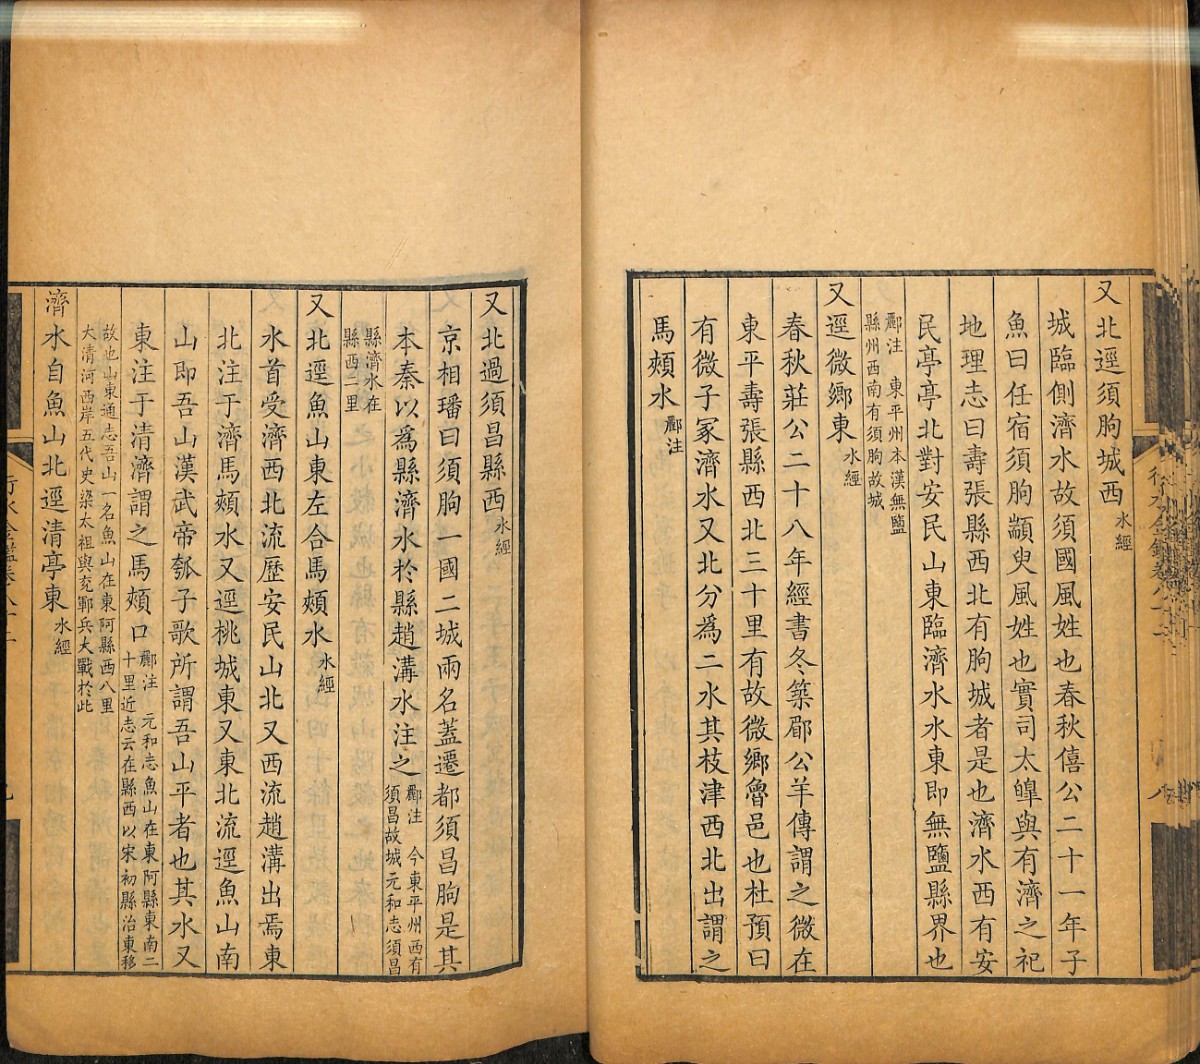 又北逕須朐城西水經
城臨側濟水故須國風姓也春秋僖公二十一年子
魚曰任宿須朐顓臾風姓也實司太皥與有濟之祀
地理志曰壽張縣西北有朐城者是也濟水西有安
民亭亭北對安民山東臨濟水水東即無鹽縣界也
酈注 東平州本漢無鹽
縣州西南有須朐故城
又逕微鄉東水經
春秋莊公二十八年經書冬築郿公羊傳謂之微在
東平壽張縣西北三十里有故微鄉魯邑也杜預曰
有微子冢濟水又北分為二水其枝津西北出謂之
馬頰水酈注
又北過須昌縣西水經
京相璠曰須朐一國二城兩名蓋遷都須昌朐是其
本秦以為縣濟水於縣趙溝水注之酈注 今東平州西有
須昌故城元和志須昌
縣濟水在
縣西二里
又北逕魚山東左合馬頰水水經
水首受濟西北流歷安民山北又西流趙溝出焉東
北注于濟馬頰水又逕桃城東又東北流逕魚山南
山即吾山漢武帝瓠子歌所謂吾山平者也其水又
東注于清濟謂之馬頰口酈注 元和志魚山在東阿縣東南二
十里近志云在縣西以宋初縣治東移
故也山東通志吾山一名魚山在東阿縣西八里
大清河西岸五代史梁太祖與兗鄆兵大戰於此
濟水自魚山北逕清亭東水經
行水金鑑卷八十二